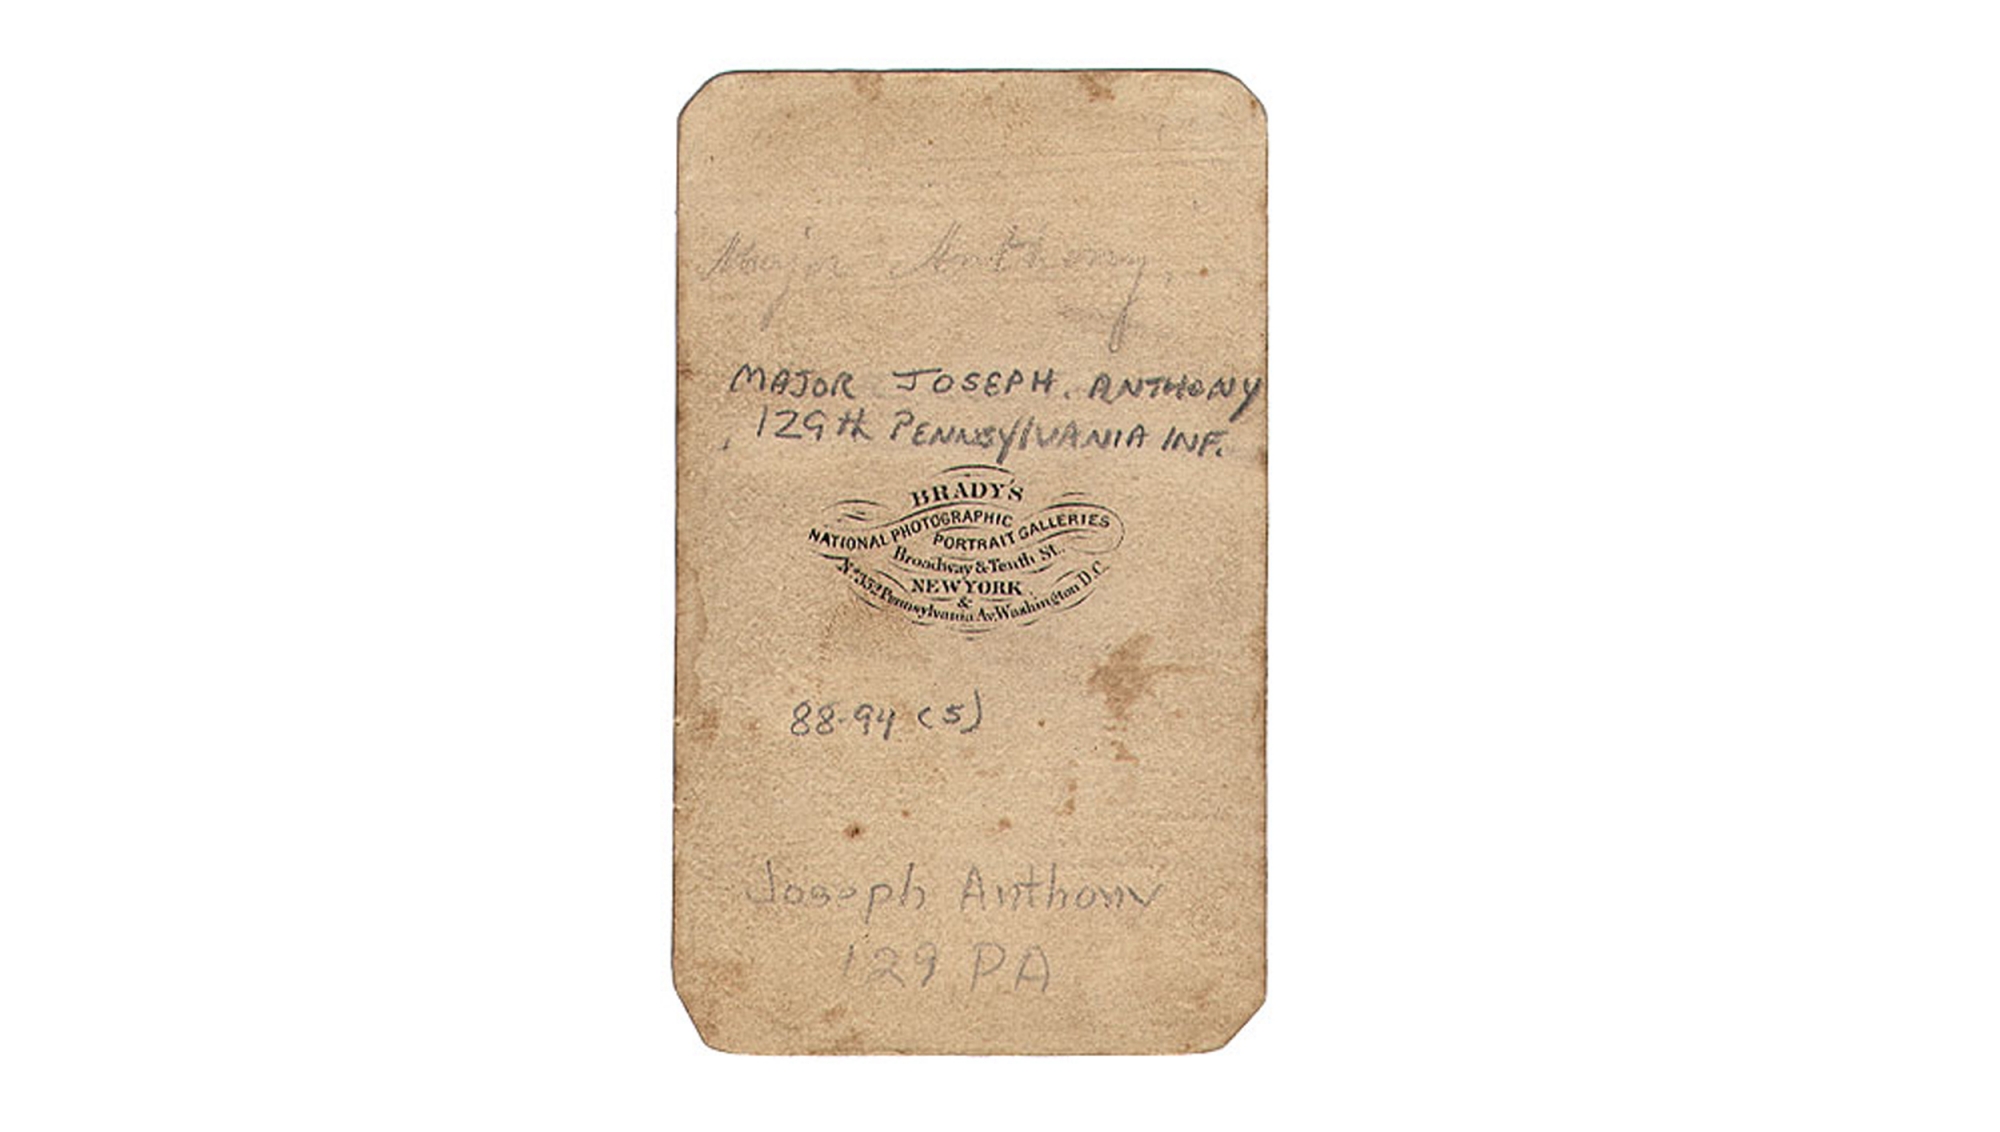 Major Anthony.
MAJOR JOSEPH. ANTHONY
129th PENNSYLVANIA INF.
BRADY'S
NATIONAL PHOTOGRAPHIC
PORTRAIT GALLERIES
Broadway & Tenth St.
NEW YORK
&
No. 352 Pennsylvania Av. Washington D.C.
88-94 (5)
Joseph Anthony
129 PA